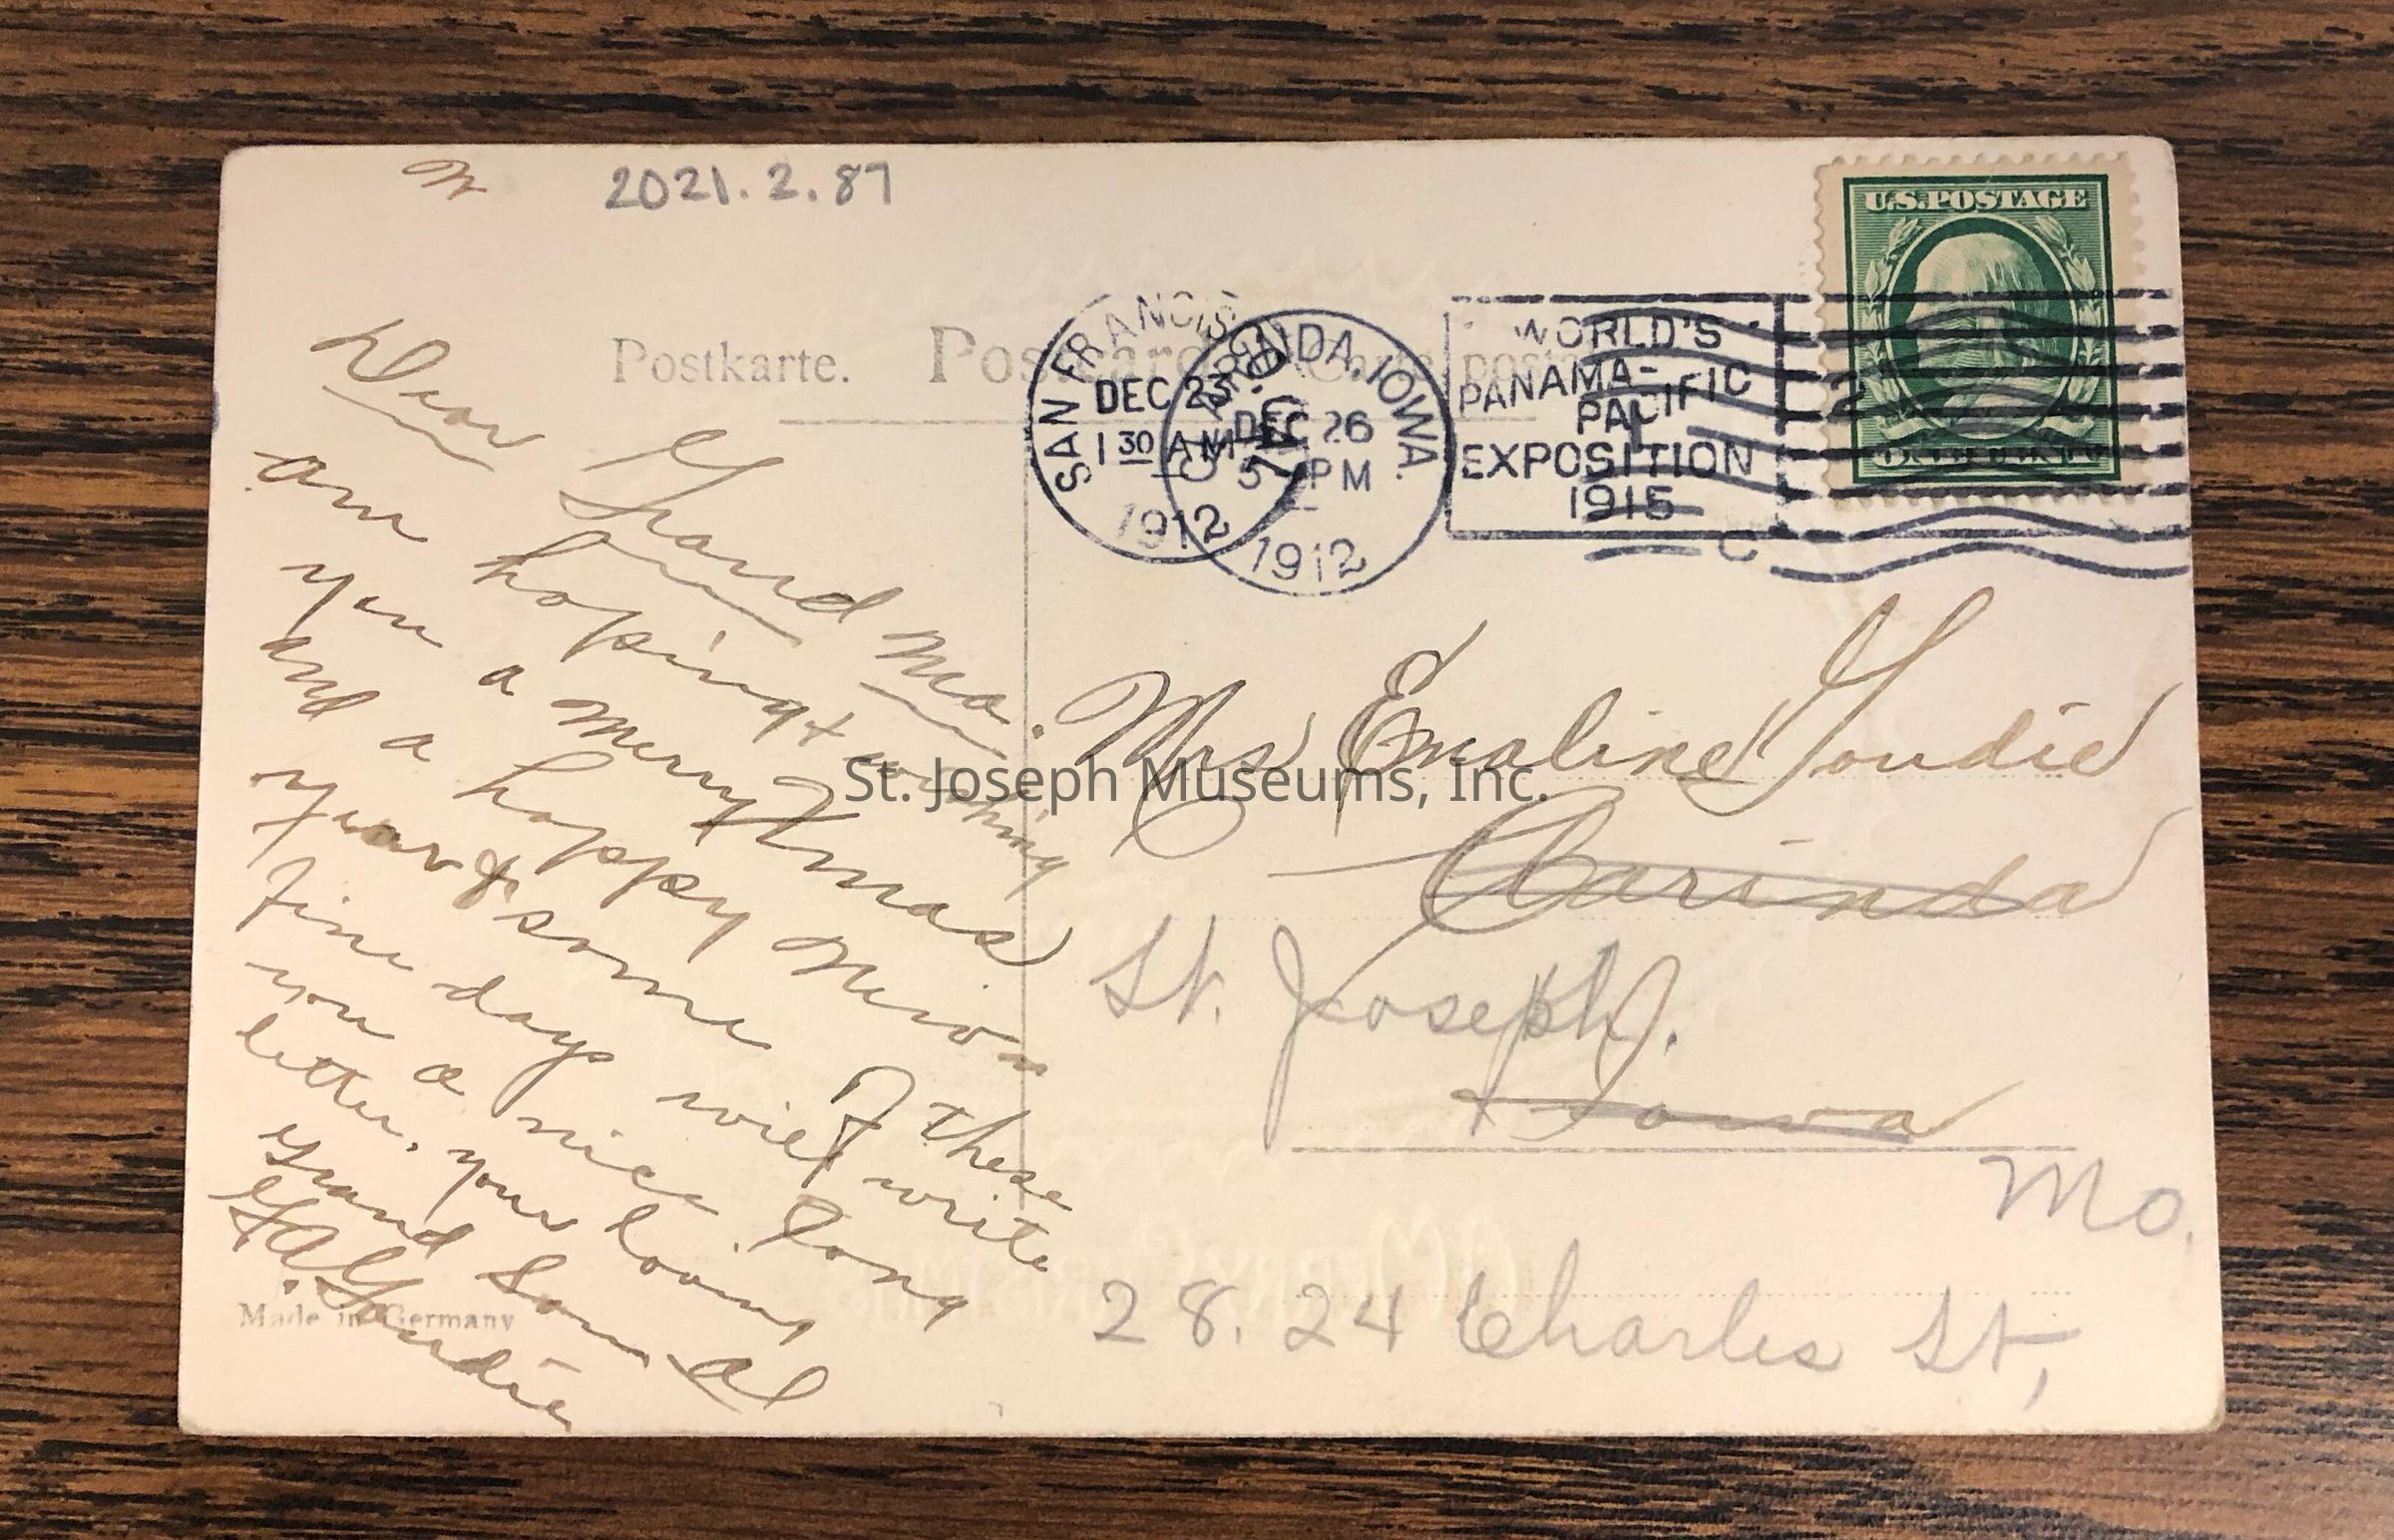 2021.2.87
Postkarte. Postcard Carte postale
U.S.POSTAGE
SAN FRANCISCO, CAL.
DEC 23
1 30 AM
1912
CLARINDA, IOWA.
DEC 26
5 PM
1912
WORLD'S
PANAMA-
PACIFIC
EXPOSITION
1915
Dear Grand Ma.
am hoping + wishing
you a merry Xmas
and a happy New
year & some I these
fine days will write
you a nice long
letter, your loving
grand son Al
Goudie
Made in Germany
Mrs Emaline Goudie
Clarinda
St. Joseph.
Iowa
Mo.
28.24 Charles St,
St. Joseph Museums, Inc.